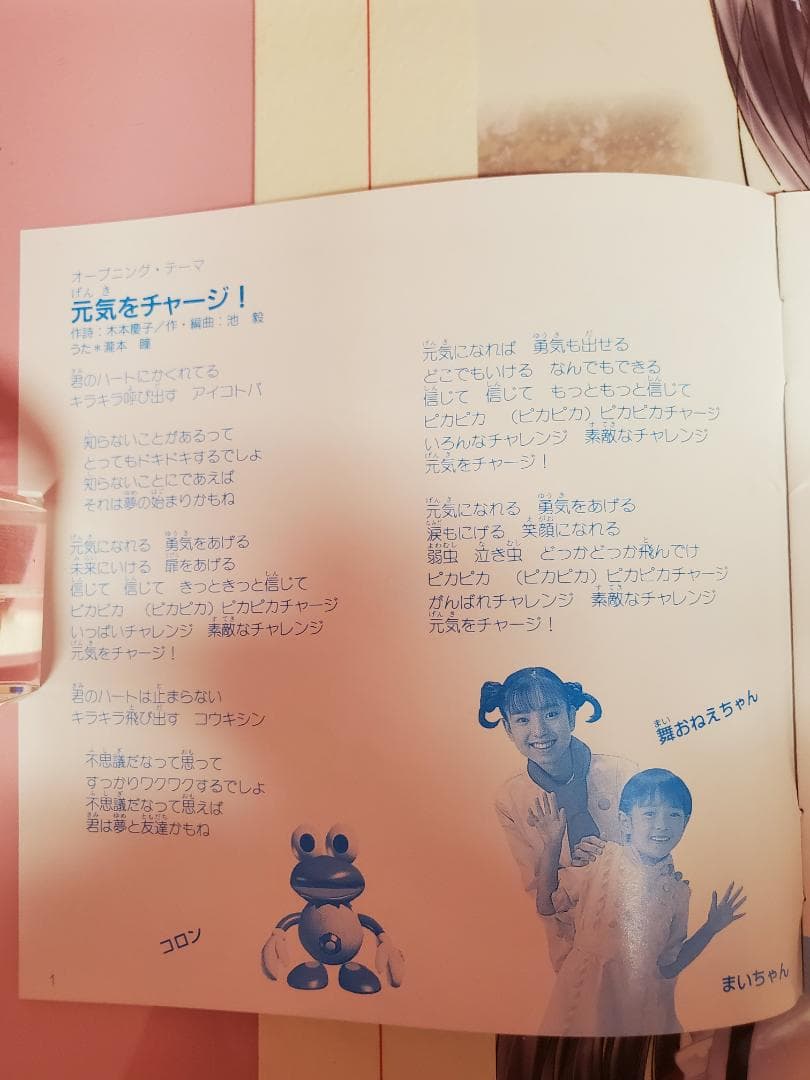 オープニング・テーマ
元気をチャージ!
作詩:木本慶子/作・編曲:池 毅
うた*瀧本 瞳
君のハートにかくれてる
キラキラ呼び出す アイコトバ
知らないことがあるって
とってもドキドキするでしょ
知らないことにであえば
それは夢の始まりかもね
元気になれる 勇気をあげる
未来にいける 扉をあげる
信じて 信じて きっときっと信じて
ピカピカ (ピカピカ) ピカピカチャージ
いっぱいチャレンジ 素敵なチャレンジ
元気をチャージ!
君のハートは止まらない
キラキラ飛び出す コウキシン
不思議だなって思って
すっかりワクワクするでしょ
不思議だなって思えば
君は夢と友達かもね
元気になれば 勇気も出せる
どこでもいける なんでもできる
信じて 信じて もっともっと信じて
ピカピカ (ピカピカ) ピカピカチャージ
いろんなチャレンジ 素敵なチャレンジ
元気をチャージ!
元気になれる 勇気をあげる
涙もにげる 笑顔になれる
弱虫 泣き虫 どっかどっか飛んでけ
ピカピカ (ピカピカ) ピカピカチャージ
がんばれチャレンジ 素敵なチャレンジ
元気をチャージ!
舞おねえちゃん
コロン
まいちゃん
1